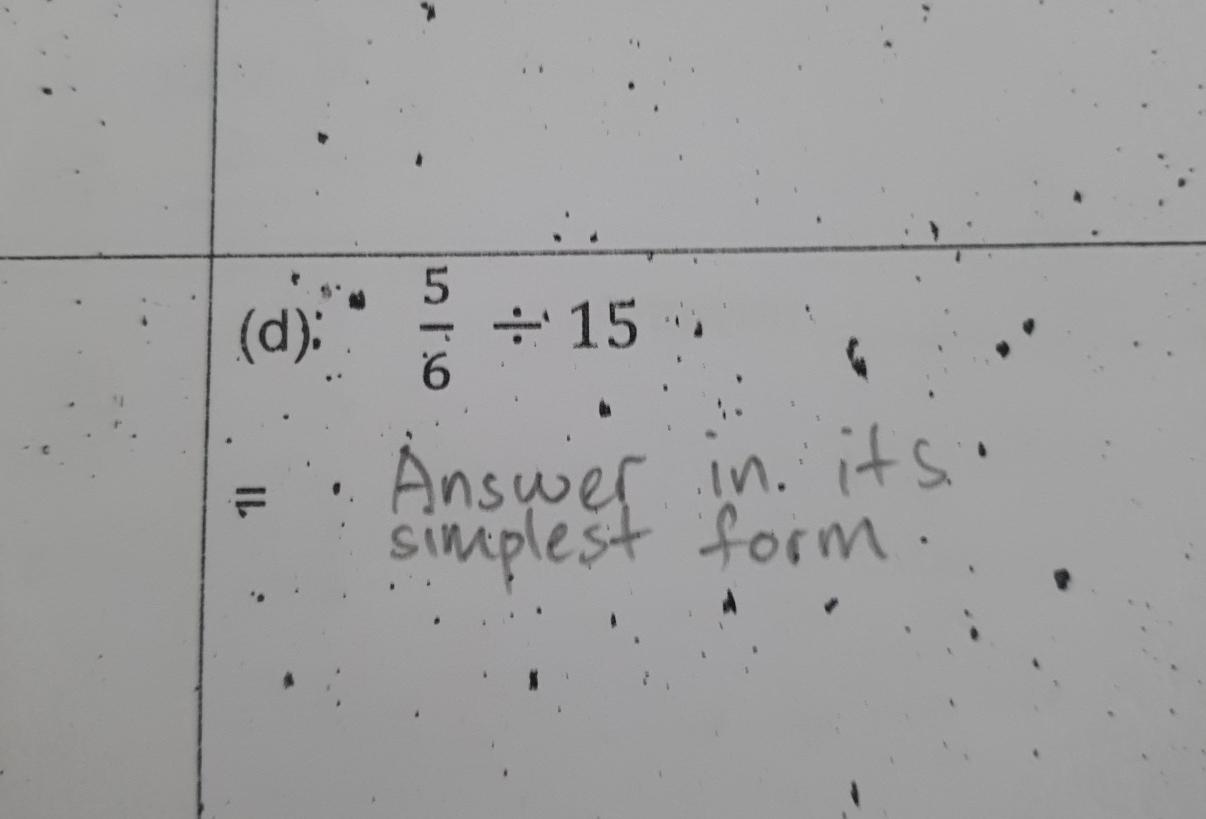 (d): 5/6 ÷ 15
= Answer in its
simplest form